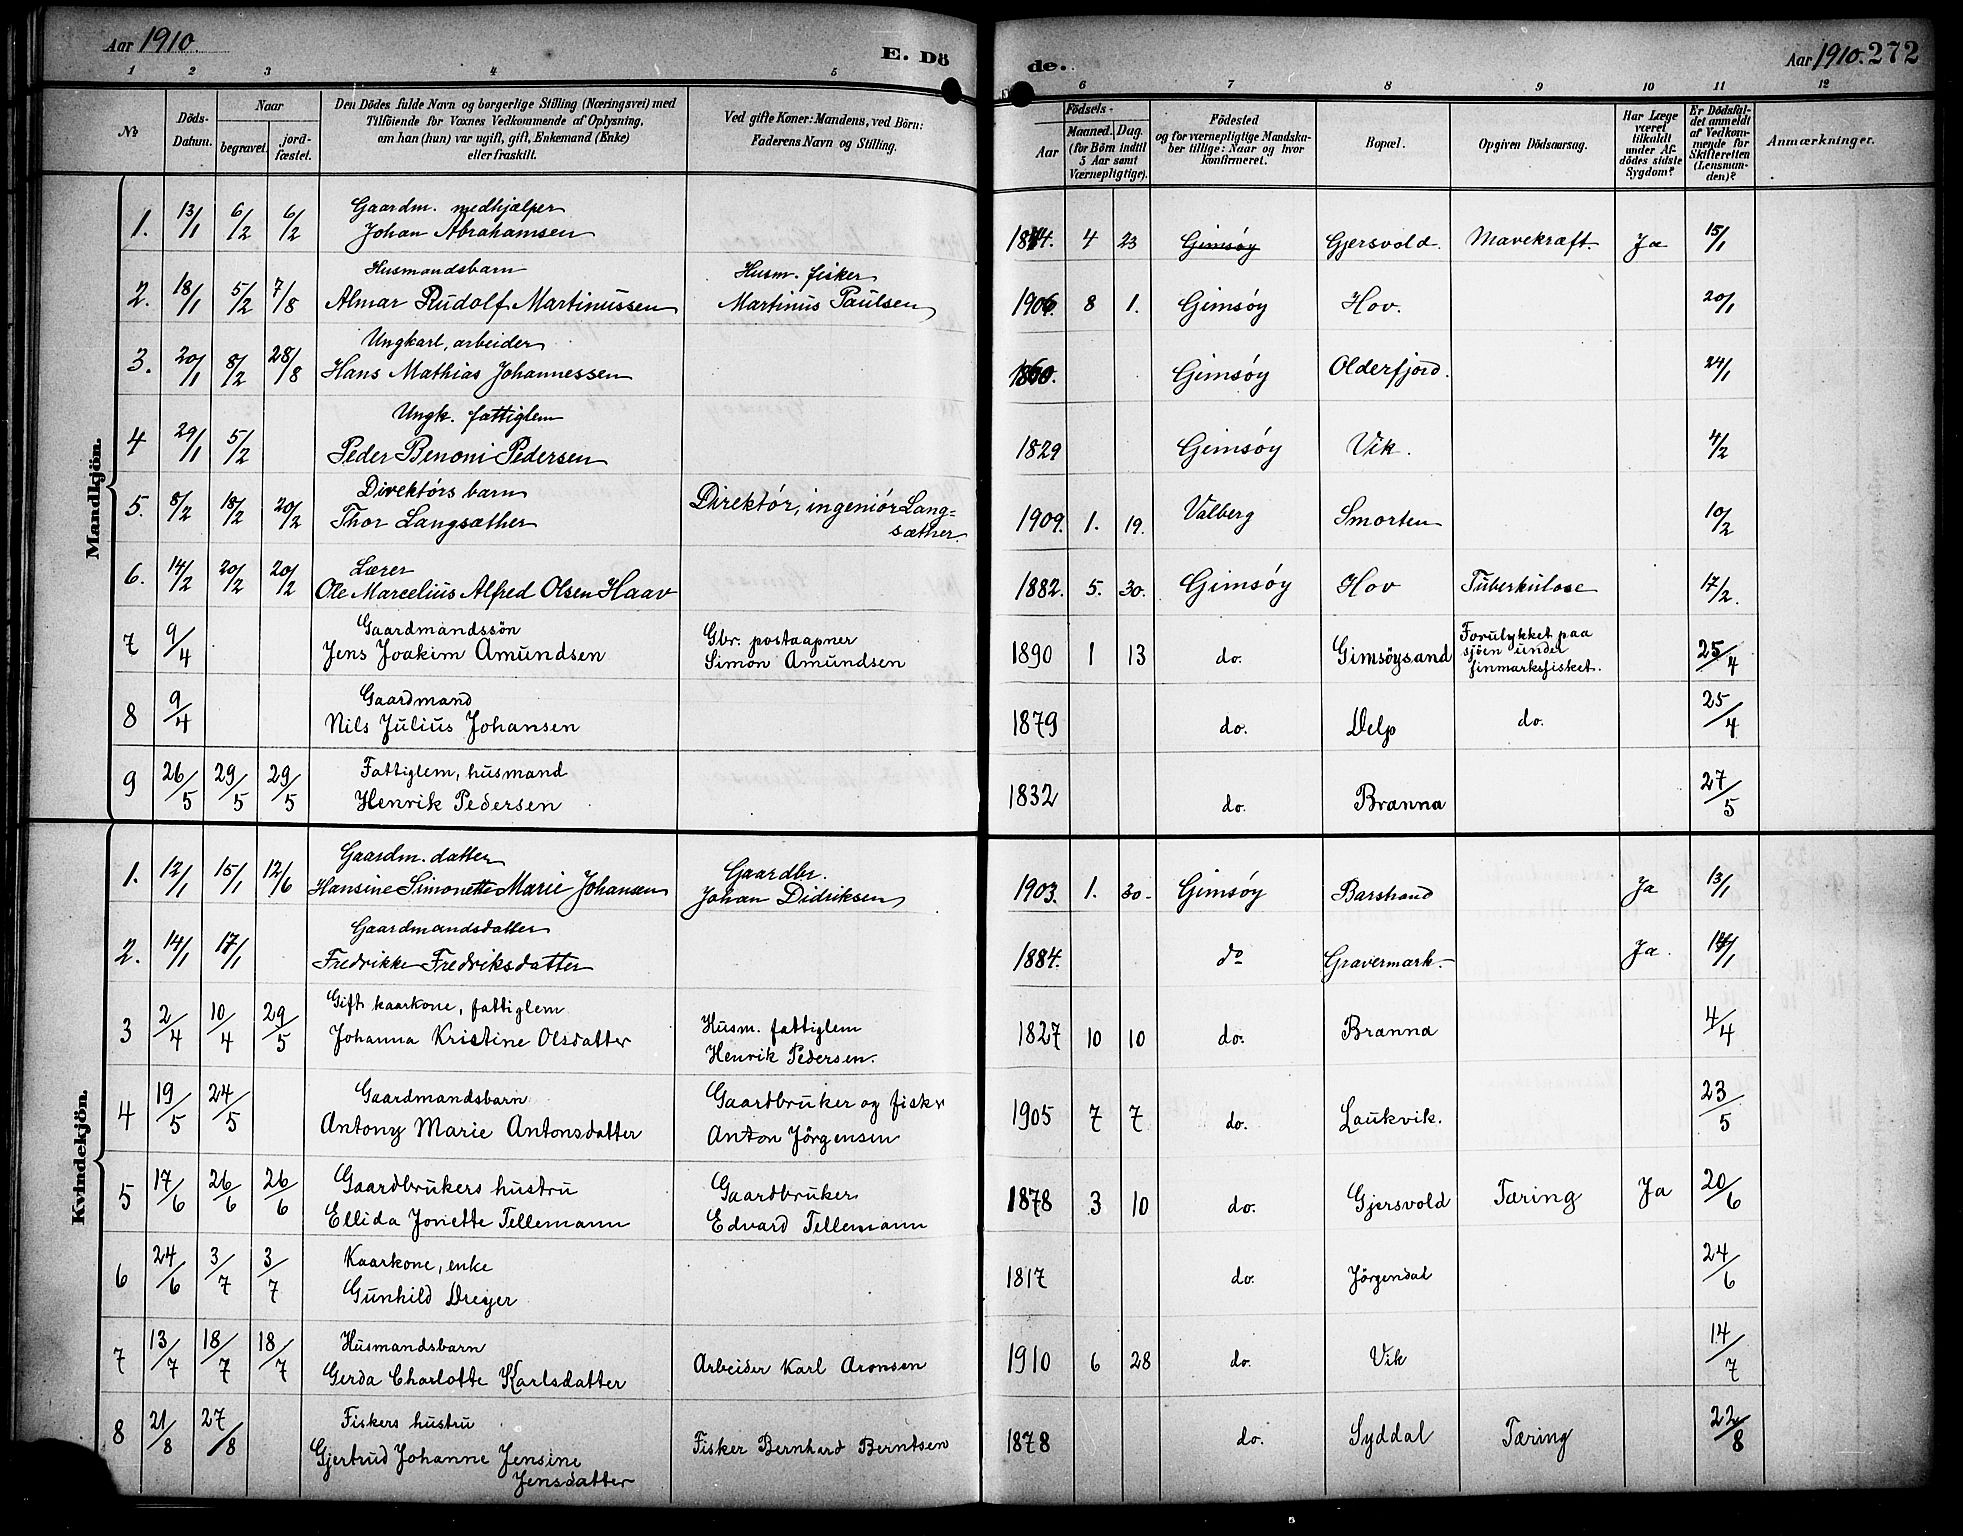 Aar 1910.
E. Dö
de.
Aar 1910. 272
1 2 3 4 5 6 7 8 9 10 11 12
No
Döds-
Datum.
Naar
begravet.
jord-
fæstet.
Den Dödes fulde Navn og borgerlige Stilling (Næringsvei) med
Tilföiende for Voxnes Vedkommende af Oplysning,
om han (hun) var ugift, gift, Enkemand (Enke)
eller fraskilt.
Ved gifte Koner: Mandens, ved Börn:
Faderens Navn og Stilling.
Födsels-
Aar
Maaned. Dag.
(for Börn indtil
5 Aar samt
Værnepligtige).
Födested
og for værnepligtige Mandska-
ber tillige: Naar og hvor
konfirmeret.
Bopæl.
Opgiven Dödsaarsag.
Har Læge
været
tilkaldt
under Af-
dödes sidste
Sygdom?
Er Dödsfal-
det anmeldt
af Vedkom-
mende for
Skifteretten
(Lensman-
den)?
Anmærkninger.
Mandkjön.
Gaardm. medhjælper
1. 13/1 6/2 6/2 Johan Abrahamsen 4 23 Gimsøy Gjersvold. Mavekræft. Ja 15/1
Husmandsbarn Husm. fisker
2. 18/1 5/2 7/8 Almar Rudolf Martinussen Martinus Paulsen 1906. 8 1. Gimsøy Hov. 20/1
Ungkarl, arbeider
3. 20/1 8/2 28/8 Hans Mathias Johannessen 1860. Gimsøy Olderfjord. 24/1
Ungk. fattiglem
4 29/1 5/2 Peder Benoni Pedersen 1829 Gimsøy Vik. 4/2
Direktörs barn Direktör, ingeniör Lang=
5. 8/2 18/2 20/2 Thor Langsæther sæther. 1909. 1. 19. Valberg Smorten 10/2
Lærer
6. 14/2 20/2 20/2 Ole Marcelius Alfred Olsen Haav 1882. 5. 30. Gimsøy Hov Tuberkulose 17/2.
Gaardmandssön Gbr. postaapner Forulykket paa
7 9/4 Jens Joakim Amundsen Simon Amundsen 1890 1 13 do. Gimsöysand sjöen under 25/4
finmarksfisket.
Gaardmand
8 9/4 Nils Julius Johansen 1879 do. Delp do. 25/4
Fattiglem, husmand
9 26/5 29/5 29/5 Henrik Pedersen 1832 do. Brænna 27/5
Kvindekjön.
Gaardm. datter Gaardbr.
1. 12/1 15/1 12/6 Hansine Simonette Marie Johansen Johan Didriksen 1903. 1. 30. Gimsøy Barstrand Ja 13/1
Gaardmandsdatter
2. 14/1 17/1 Fredrikke Fredriksdatter 1884. do Gravermark. Ja.
Gift kaarkone, fattiglem Husm. fattiglem
3 2/4 10/4 29/5 Johanna Kristine Olsdatter Henrik Pedersen. 1827 10 10 do. Brænna 4/4
Gaardmandsbarn Gaardbruker og fisker
4 19/5 24/5 Antony Marie Antonsdatter Anton Jörgensen 1905 7 7 do. Laukvik. 23/5
Gaardbrukers hustru Gaardbruker
5 17/6 26/6 26/6 Ellida Jonette Tellemann Edvard Tellemann 1878 3 10 do. Gjersvold Tæring Ja 20/6
Kaarkone, enke
6 24/6 3/7 3/7 Gunhild Dreyer 1817 do. Jörgendal 24/6
Husmandsbarn
7 13/7 18/7 18/7 Gerda Charlotte Karlsdatter Arbeider Karl Aronsen 1910 6 28 do. Vik 14/7
Fiskers hustru
8 21/8 27/8 Gjertrud Johanne Jensine Fisker Bernhard Berntsen 1878 do. Syddal Tæring 22/8
Jensdatter